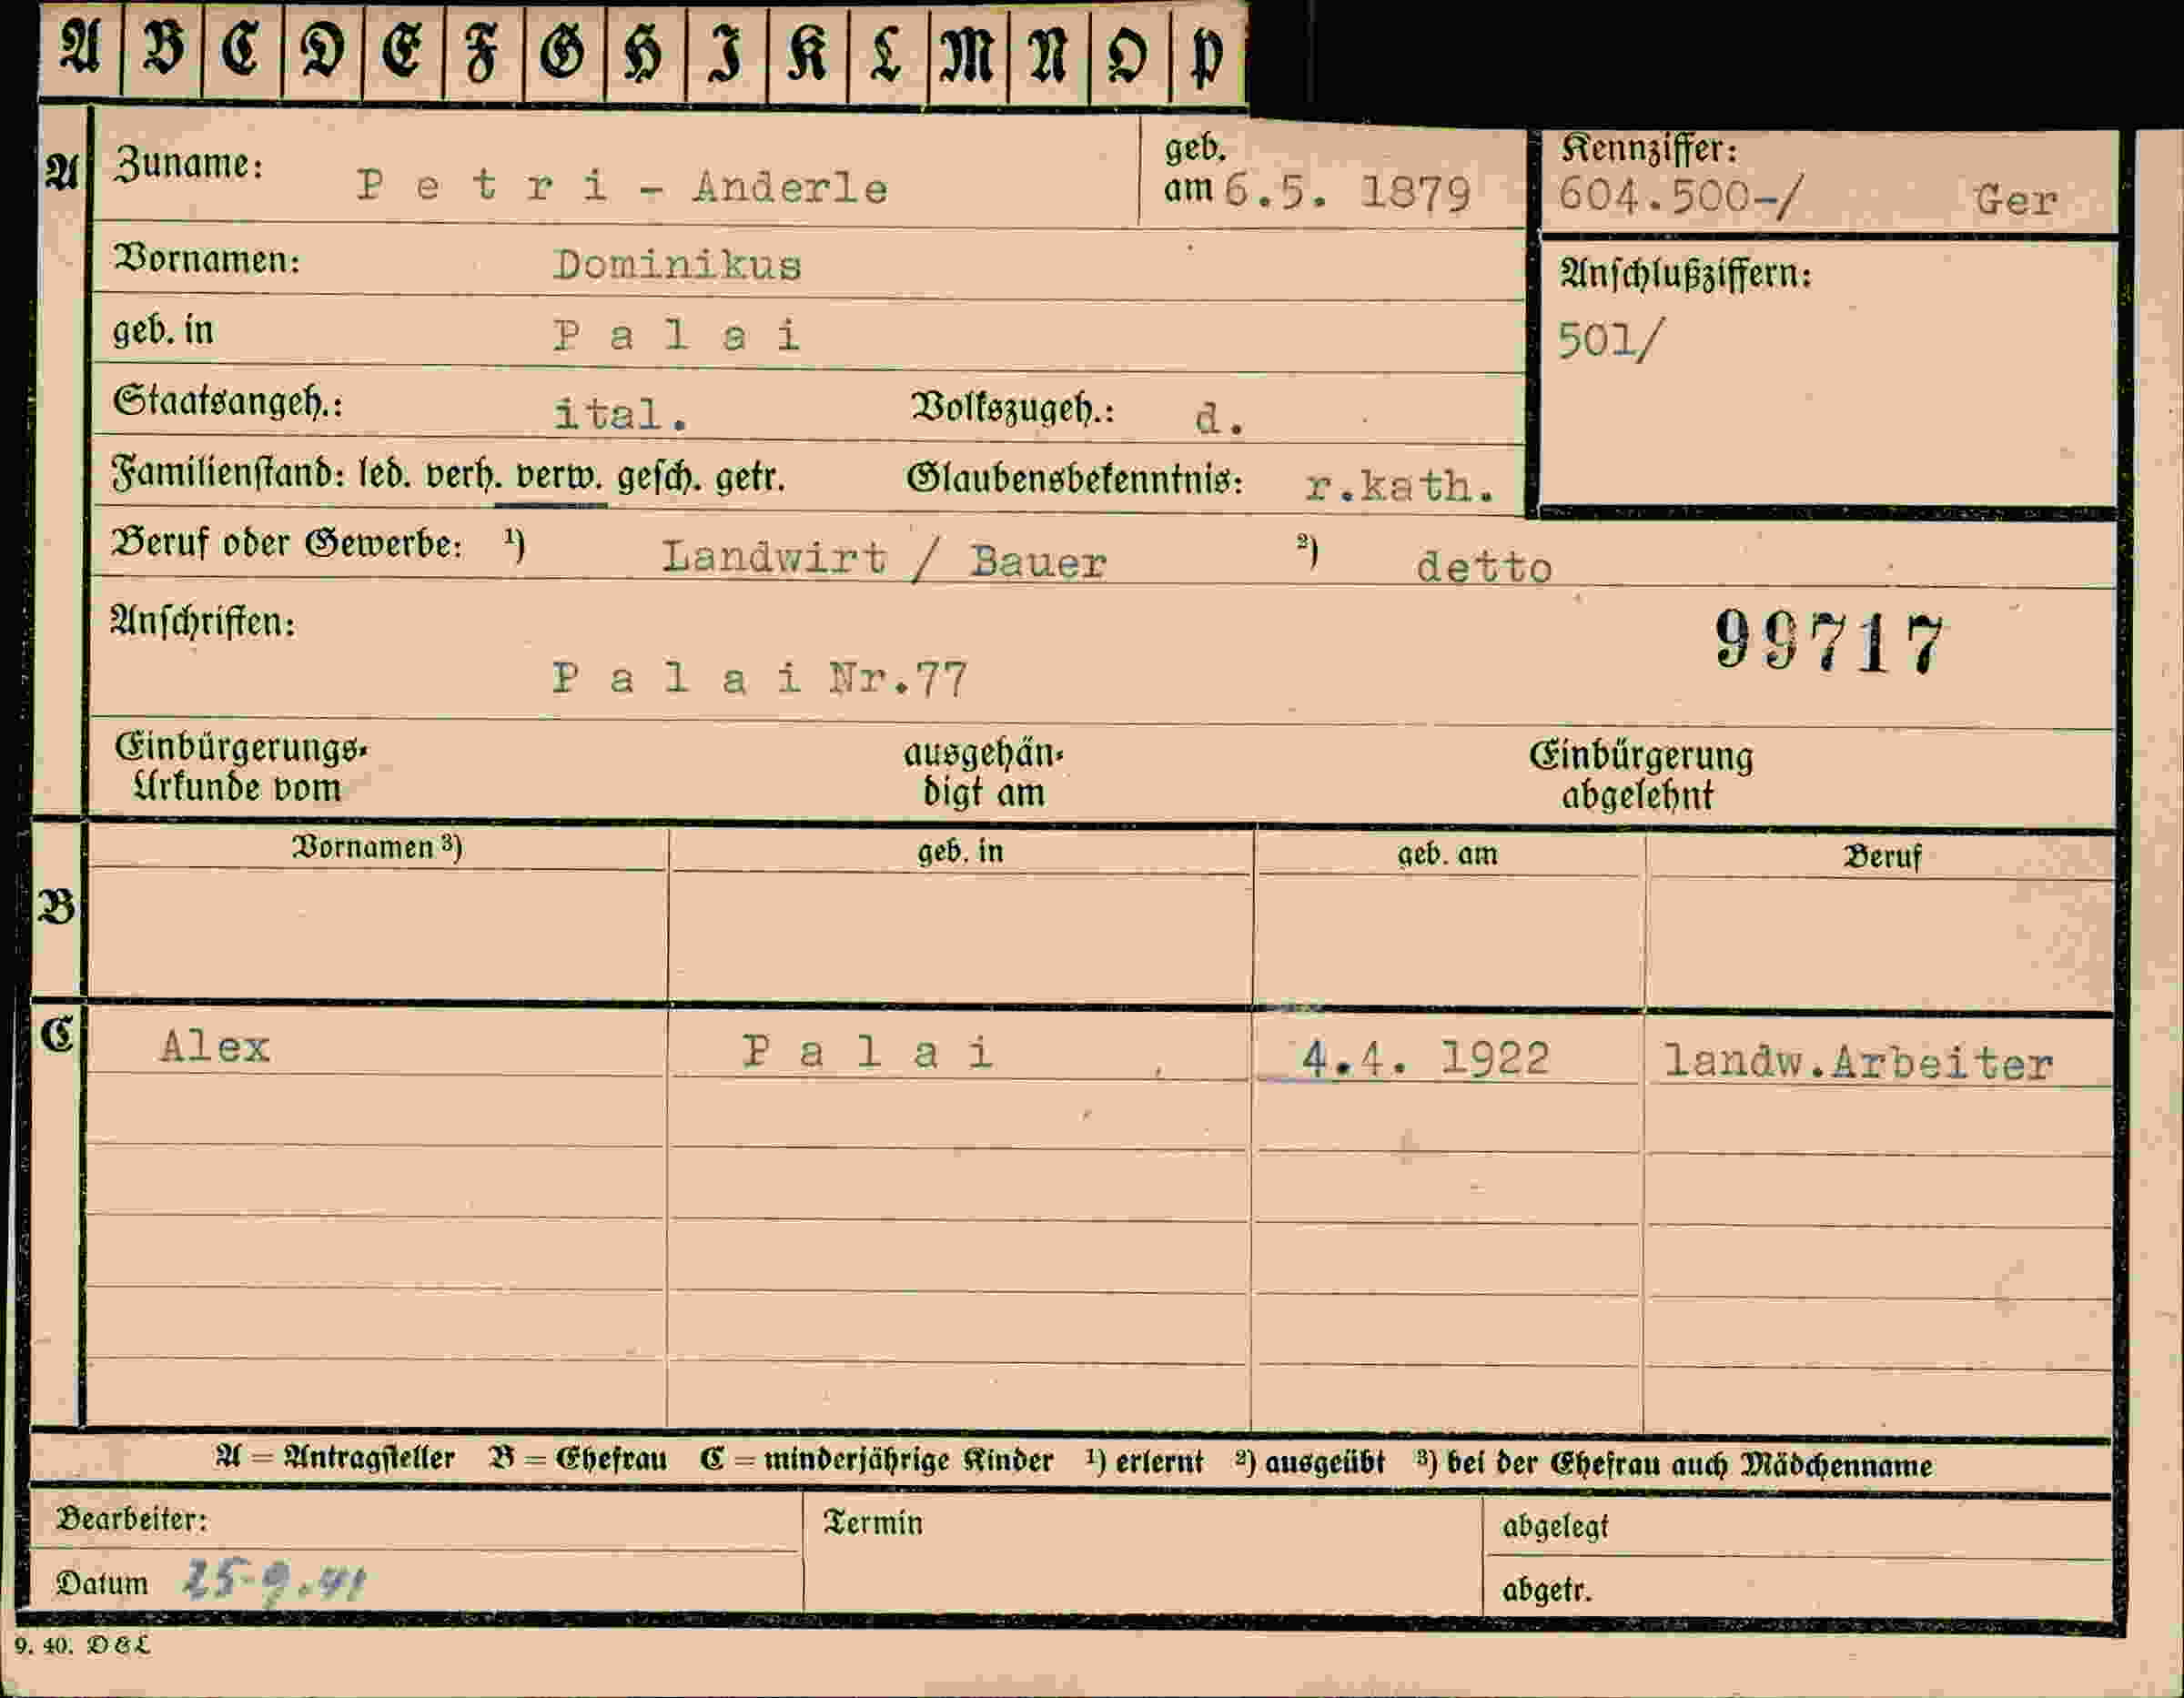 A B C D E F G H I K L M N O P
A Zuname: P e t r i - Anderle geb. am 6.5. 1879 Kennziffer: 604.500-/ Ger
Vornamen: Dominikus Anschlußziffern:
geb. in P a l a i 501/
Staatsangeh.: ital. Volkszugeh.: d.
Familienstand: led. verh. verw. gesch. getr. Glaubensbekenntnis: r.kath.
Beruf oder Gewerbe: 1) Landwirt / Bauer 2) detto
Anschriften: 99717
P a l a i Nr.77
Einbürgerungs- ausgehän- Einbürgerung
Urkunde vom digt am abgelehnt
Vornamen 3) geb. in geb. am Beruf
B
C Alex P a l a i 4.4. 1922 landw.Arbeiter
A = Antragsteller B = Ehefrau C = minderjährige Kinder 1) erlernt 2) ausgeübt 3) bei der Ehefrau auch Mädchenname
Bearbeiter: Termin abgelegt
Datum 25-9.41 abgetr.
9. 40. D & L